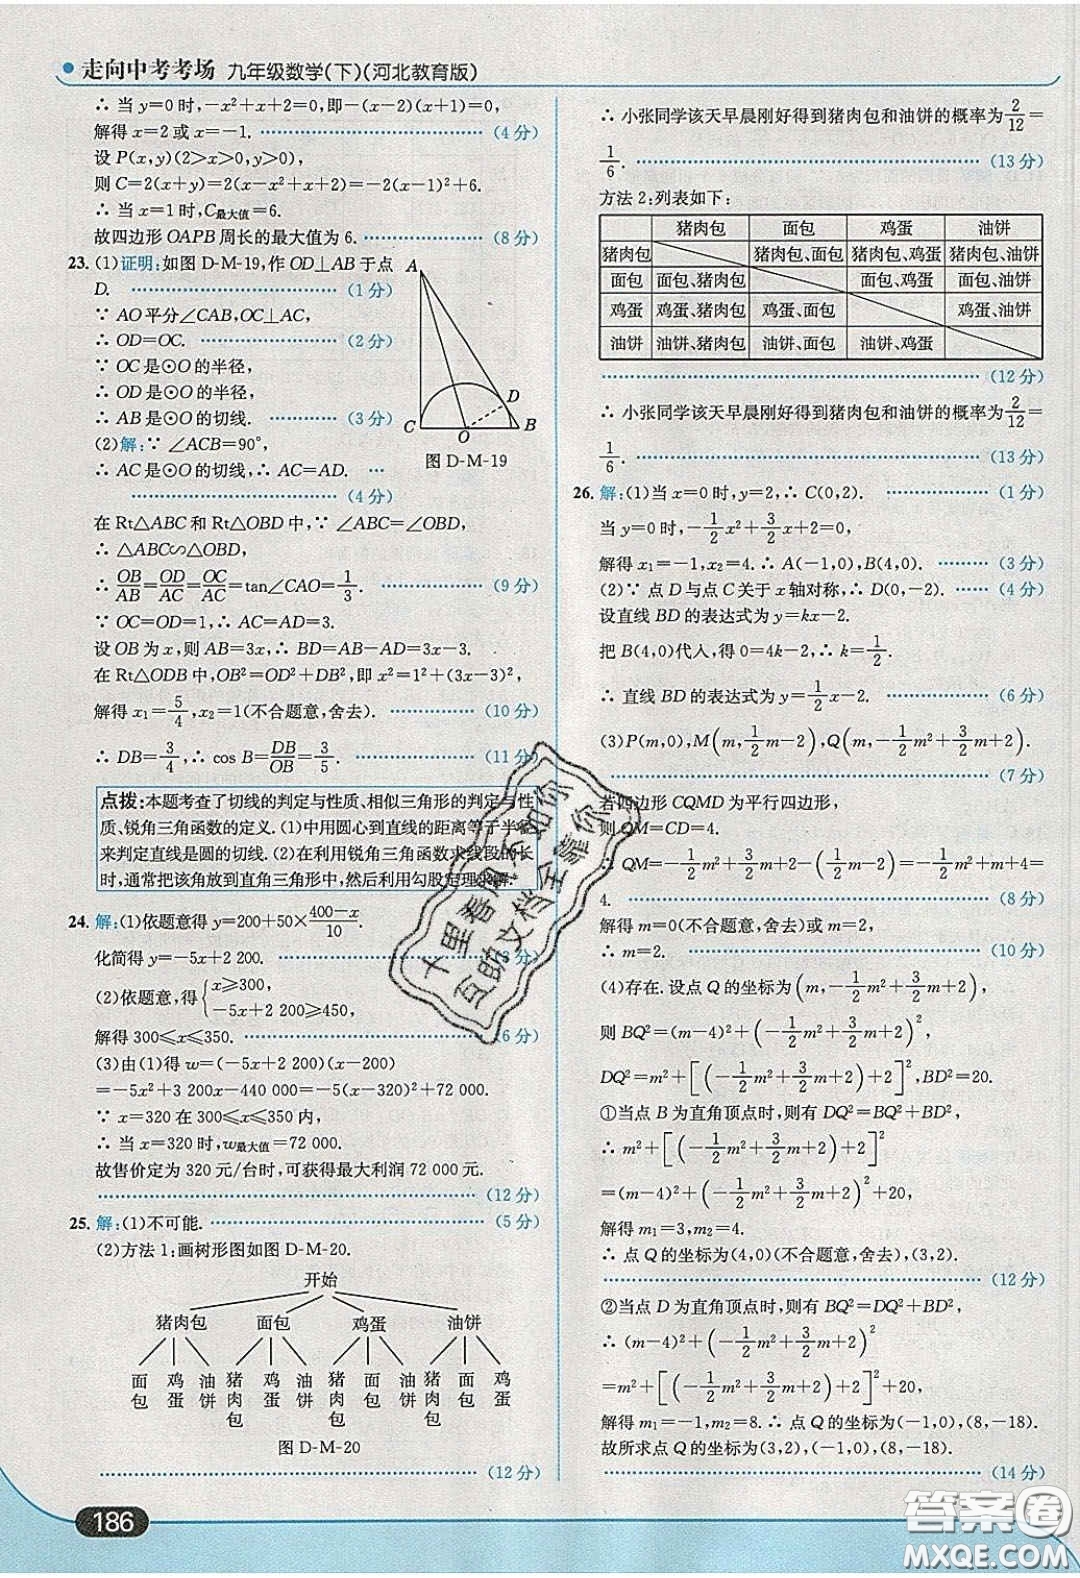 走向中考考场 九年级数学(下)(河北教育版)
∴ 当 y=0 时,-x²+x+2=0,即-(x-2)(x+1)=0,
解得 x=2 或 x=-1. (4 分)
设 P(x,y)(2>x>0,y>0),
则 C=2(x+y)=2(x-x²+x+2)=-2(x-1)²+6.
∴ 当 x=1 时,C最大值=6.
故四边形 OAPB 周长的最大值为 6. (8 分)
23. (1)证明:如图 D-M-19,作 OD⊥AB 于点
D. (1 分)
∵ AO 平分∠CAB,OC⊥AC,
∴ OD=OC. (2 分)
∵ OC 是⊙O 的半径,
∴ OD 是⊙O 的半径,
∴ AB 是⊙O 的切线. (3 分)
(2)解:∵ ∠ACB=90°,
∴ AC 是⊙O 的切线,∴ AC=AD.
(4 分)
A
D
C
O
B
图 D-M-19
在 Rt△ABC 和 Rt△OBD 中,∵ ∠ABC=∠OBD,
∴ △ABC∽△OBD,
∴ OB/AB=OD/AC=OC/AC=tan∠CAO=1/3. (9 分)
∵ OC=OD=1,∴ AC=AD=3.
设 OB 为 x,则 AB=3x,∴ BD=AB-AD=3x-3.
在 Rt△ODB 中,OB²=OD²+DB²,即 x²=1²+(3x-3)²,
解得 x₁=5/4,x₂=1(不合题意,舍去). (10 分)
∴ DB=3/4,∴ cos B=DB/OB=3/5. (11 分)
点拨:本题考查了切线的判定与性质、相似三角形的判定与性
质、锐角三角函数的定义.(1)中用圆心到直线的距离等于半径
来判定直线是圆的切线.(2)在利用锐角三角函数求线段的长
时,通常把该角放到直角三角形中,然后利用勾股定理求解.
24. 解:(1)依题意得 y=200+50×(400-x)/10.
化简得 y=-5x+2 200. (3 分)
(2)依题意,得{x≥300,
-5x+2 200≥450,
解得 300≤x≤350. (6 分)
(3)由(1)得 w=(-5x+2 200)(x-200)
=-5x²+3 200x-440 000=-5(x-320)²+72 000.
∵ x=320 在 300≤x≤350 内,
∴ 当 x=320 时,w最大值=72 000.
故售价定为 320 元/台时,可获得最大利润 72 000 元.
(12 分)
25. 解:(1)不可能. (5 分)
(2)方法 1:画树形图如图 D-M-20.
开始
猪肉包 面包 鸡蛋 油饼
面包 鸡蛋 油饼 猪肉包 鸡蛋 油饼 猪肉包 面包 油饼 猪肉包 面包 鸡蛋
图 D-M-20
(12 分)
∴ 小张同学该天早晨刚好得到猪肉包和油饼的概率为2/12=
1/6. (13 分)
方法 2:列表如下:
猪肉包 面包 鸡蛋 油饼
猪肉包 猪肉包、面包 猪肉包、鸡蛋 猪肉包、油饼
面包 面包、猪肉包 面包、鸡蛋 面包、油饼
鸡蛋 鸡蛋、猪肉包 鸡蛋、面包 鸡蛋、油饼
油饼 油饼、猪肉包 油饼、面包 油饼、鸡蛋
(12 分)
∴ 小张同学该天早晨刚好得到猪肉包和油饼的概率为2/12=
1/6. (13 分)
26. 解:(1)当 x=0 时,y=2,∴ C(0,2). (1 分)
当 y=0 时,-1/2x²+3/2x+2=0,
解得 x₁=-1,x₂=4.∴ A(-1,0),B(4,0). (3 分)
(2)∵ 点 D 与点 C 关于 x 轴对称,∴ D(0,-2). (4 分)
设直线 BD 的表达式为 y=kx-2.
把 B(4,0)代入,得 0=4k-2,∴ k=1/2.
∴ 直线 BD 的表达式为 y=1/2x-2. (6 分)
(3)P(m,0),M(m,1/2m-2),Q(m,-1/2m²+3/2m+2).
(7 分)
若四边形 CQMD 为平行四边形,
则 QM=CD=4.
∴ QM=-1/2m²+3/2m+2-(1/2m-2)=-1/2m²+m+4=
4. (8 分)
解得 m=0(不合题意,舍去)或 m=2,
∴ m=2. (10 分)
(4)存在.设点 Q 的坐标为(m,-1/2m²+3/2m+2),
则 BQ²=(m-4)²+(-1/2m²+3/2m+2)²,
DQ²=m²+[(-1/2m²+3/2m+2)+2]²,BD²=20.
①当点 B 为直角顶点时,则有 DQ²=BQ²+BD²,
∴ m²+[(-1/2m²+3/2m+2)+2]²
=(m-4)²+(-1/2m²+3/2m+2)²+20,
解得 m₁=3,m₂=4.
∴ 点 Q 的坐标为(4,0)(不合题意,舍去),(3,2).
(12 分)
②当点 D 为直角顶点时,则有 BQ²=DQ²+BD²,
∴ (m-4)²+(-1/2m²+3/2m+2)²
=m²+[(-1/2m²+3/2m+2)+2]²+20,
解得 m₁=-1,m₂=8.∴ 点 Q 的坐标为(-1,0),(8,-18).
故所求点 Q 的坐标为(3,2),(-1,0),(8,-18).
(14 分)
十里春风不如你
互助文档全靠你
186
答案圈
MXQE.COM